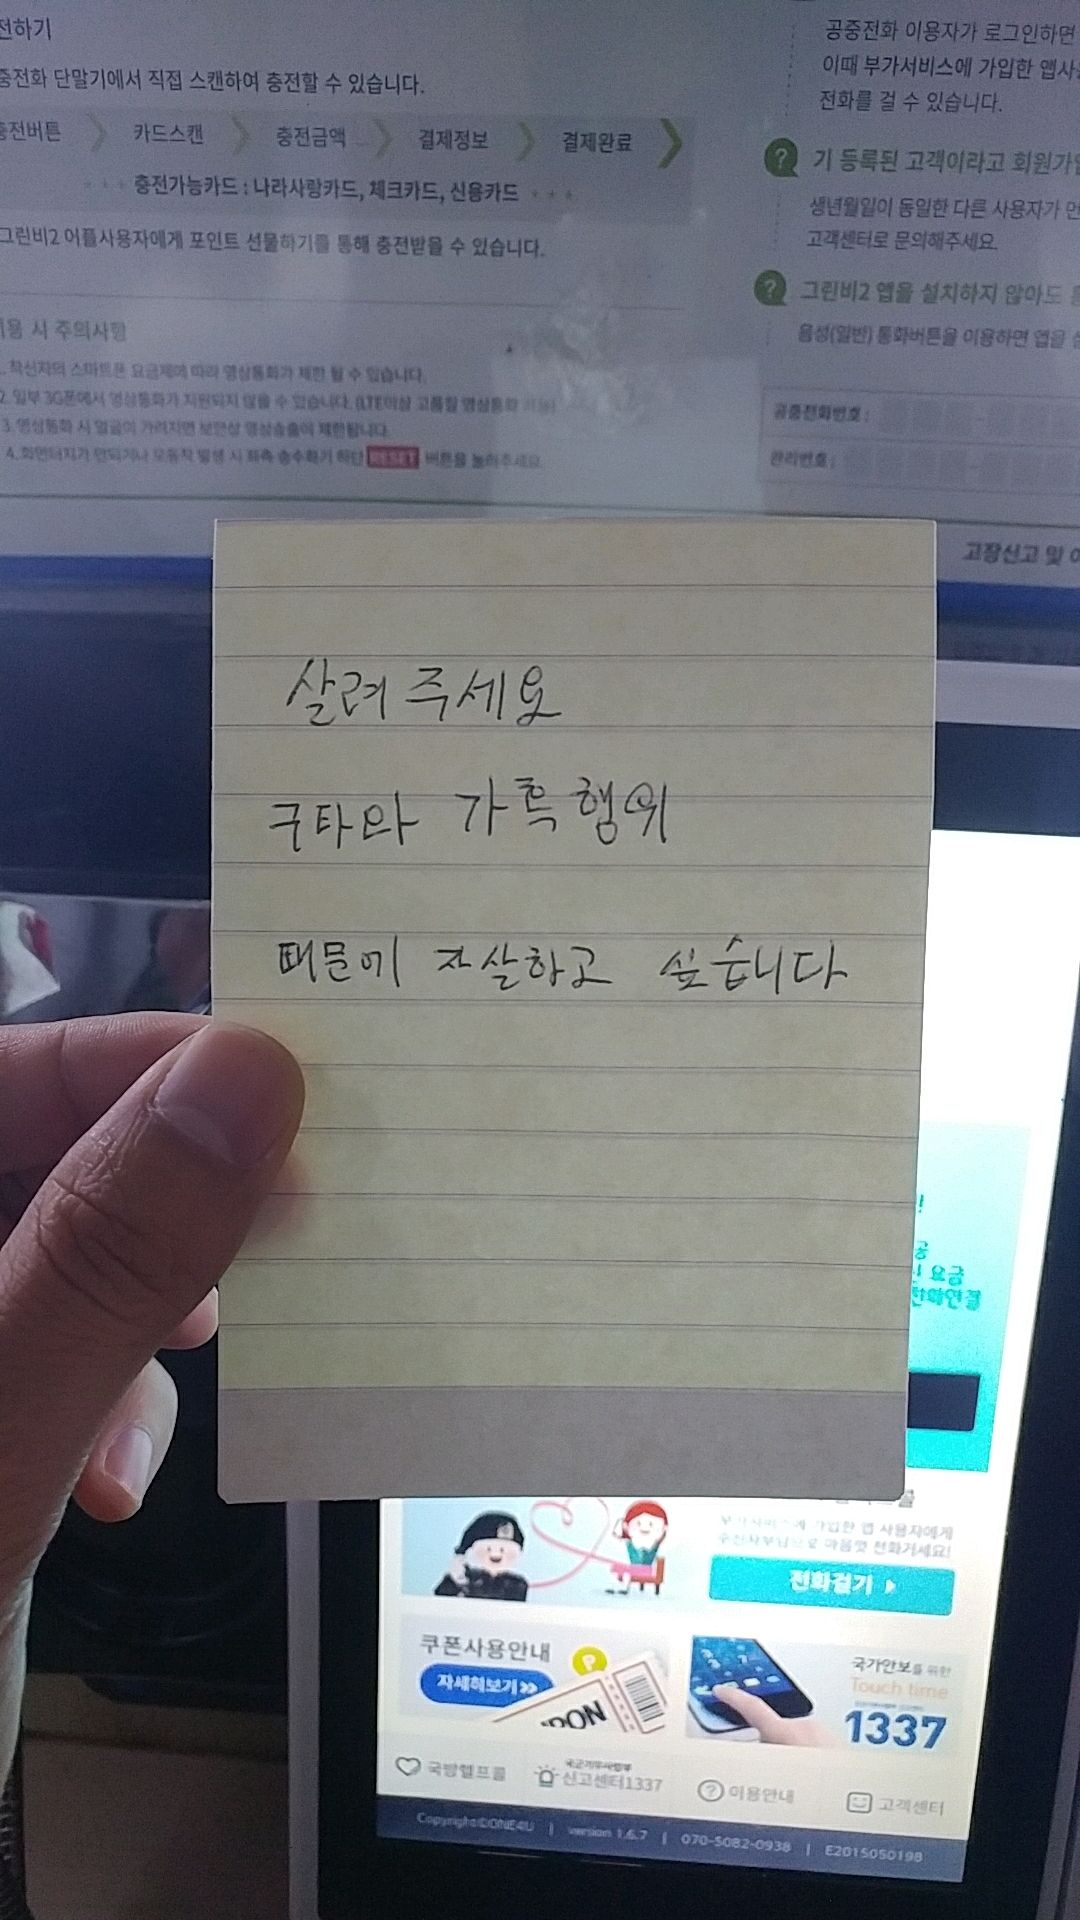 전하기
중전화 단말기에서 직접 스캔하여 충전할 수 있습니다.
충전버튼
카드스캔
충전금액
결제정보
결제완료
충전가능카드 : 나라사랑카드, 체크카드, 신용카드
그린비2 어플사용자에게 포인트 선물하기를 통해 충전받을 수 있습니다.
이용 시 주의사항
1. 착신자의 스마트폰 요금제에 따라 영상통화가 제한 될 수 있습니다.
2. 일부 3G폰에서 영상통화가 지원되지 않을 수 있습니다. (LTE이상 고품질 영상통화 가능)
3. 영상통화 시 얼굴이 가려지면 보안상 영상송출이 제한됩니다.
4. 화면터치가 안되거나 오동작 발생 시 좌측 송수화기 하단 RESET 버튼을 눌러주세요.
공중전화 이용자가 로그인하면
이때 부가서비스에 가입한 앱사용
전화를 걸 수 있습니다.
? 기 등록된 고객이라고 회원가입
생년월일이 동일한 다른 사용자가 먼
고객센터로 문의해주세요.
? 그린비2 앱을 설치하지 않아도
음성(일반) 통화버튼을 이용하면 앱을
공중전화번호 :
관리번호 :
고장신고 및
살려 주세요
구타와 가혹행위
때문에 자살하고 싶습니다
요금
부가서비스에 가입한 앱 사용자에게
수신자부담으로 마음껏 전화거세요!
전화걸기
쿠폰사용안내
자세히보기
국가안보를 위한
Touch time
1337
국방헬프콜
국군기무사령부
신고센터1337
이용안내
고객센터
Copyright©ONE4U | version 1.6.7 | 070-5082-0938 | E2015050198